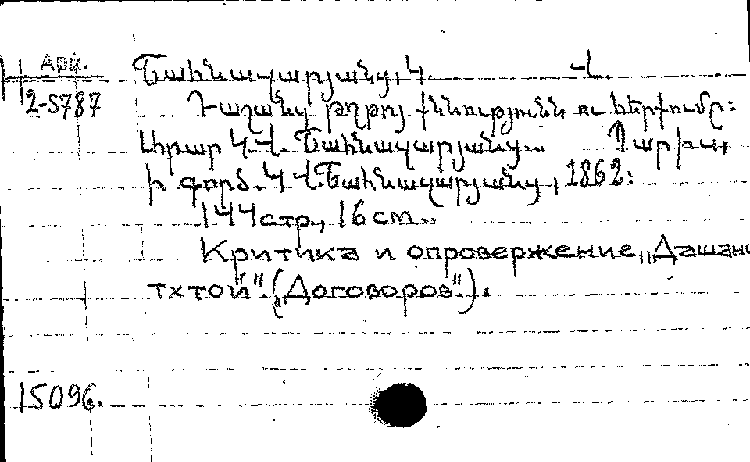 Арм.
2-5787
Շահնազարյանց, Կ. Վ.
Դաշանց թղթոյ քննությունն ու հերքումը:
Արար Կ. Վ. Շահնազարյանց.. Պարիս,
ի գործ. Կ Վ. Շահնազարյանց, 1862:
144 стр., 16 см..
Критика и опровержение „Дашанс
тхтой". („Договоров").
15096.